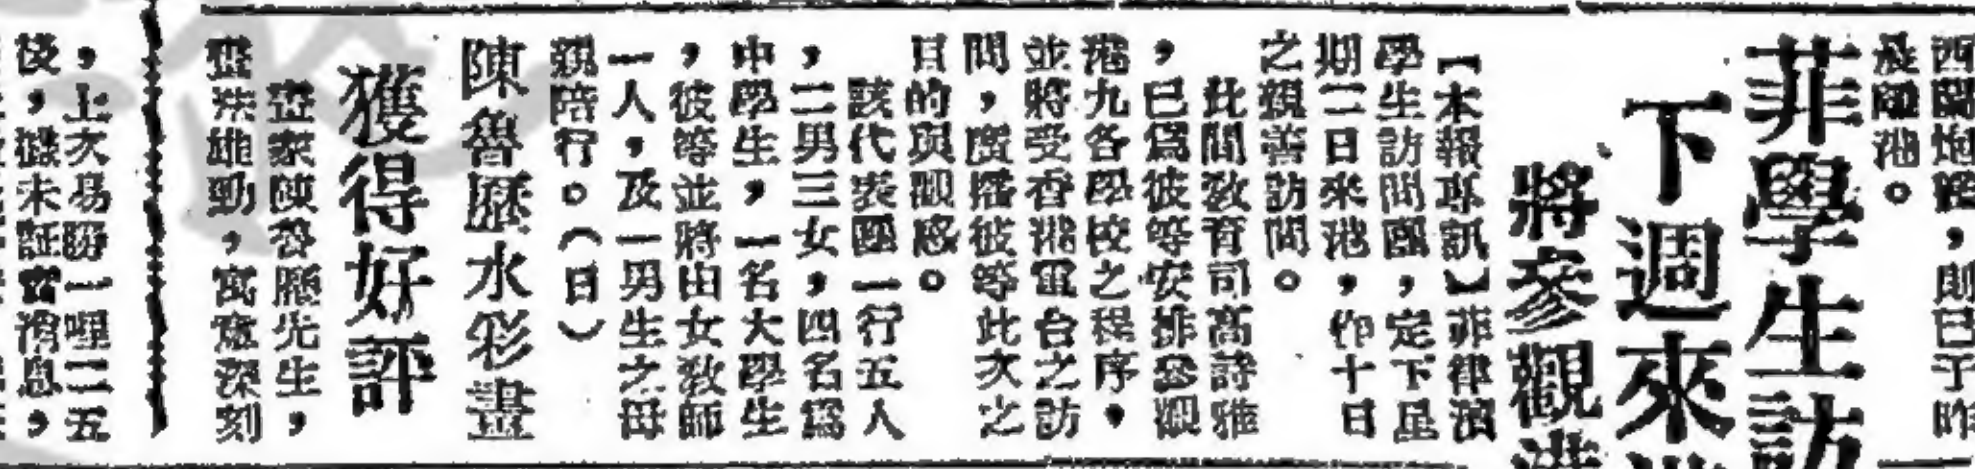 西蘭炮艦，則已于昨
晨離港。
菲學生訪
下週來
將參觀港
【本報專訊】菲律濱
學生訪問團，定下星
期二日來港，作十日
之親善訪問。
此間敎育司高詩雅
，已爲彼等安排參觀
港九各學校之程序，
並將受香港電台之訪
問，廣播彼等此次之
目的與觀感。
該代表團一行五人
，二男三女，四名爲
中學生，一名大學生
，彼等並將由女敎師
一人，及一男生之母
親陪行。（日）
陳魯歷水彩畫
獲得好評
畫家陳魯歷先生，
畫法雄勁，寓意深刻
，上次易勝一哩二五
後，據未証實消息，